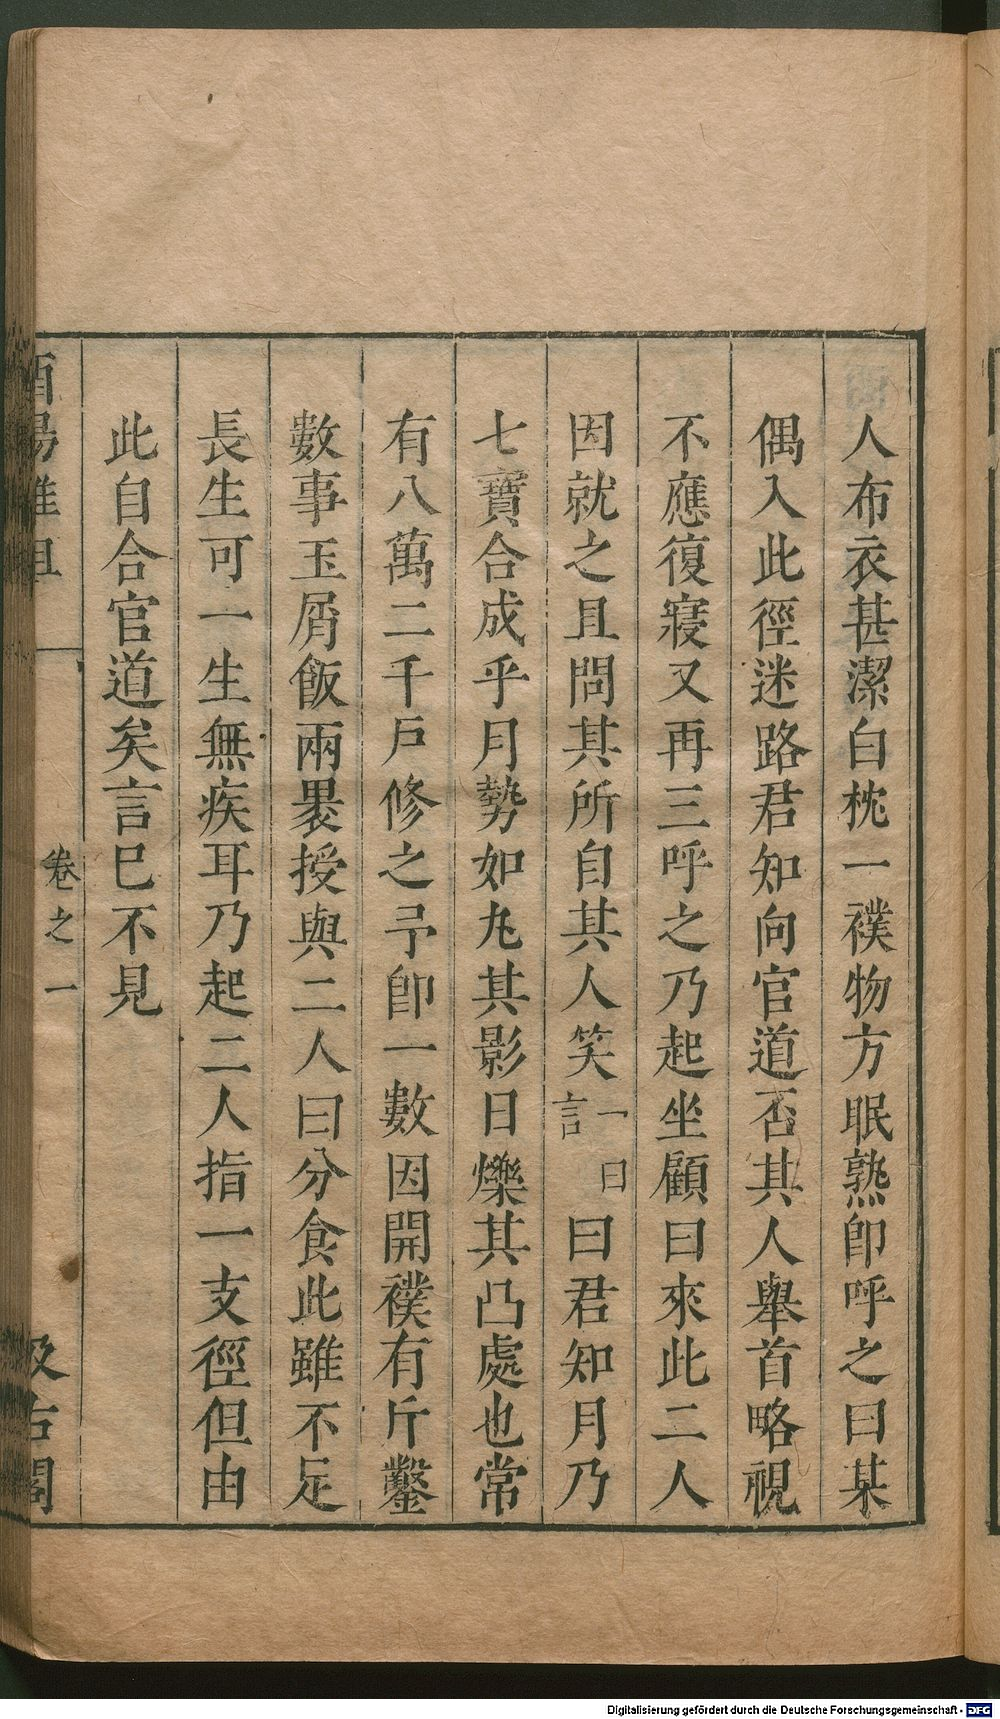 人布衣甚潔白枕一襆物方眠熟卽呼之曰某
偶入此徑迷路君知向官道否其人舉首略視
不應復寢又再三呼之乃起坐顧曰來此二人
因就之且問其所自其人笑一曰言曰君知月乃
七寶合成乎月勢如丸其影日爍其凸處也常
有八萬二千戶修之予卽一數因開襆有斤鑿
數事玉屑飯兩褁授與二人曰分食此雖不足
長生可一生無疾耳乃起二人指一支徑但由
此自合官道矣言已不見
酉陽雜俎
卷之一
汲古閣
Digitalisierung gefördert durch die Deutsche Forschungsgemeinschaft - DFG